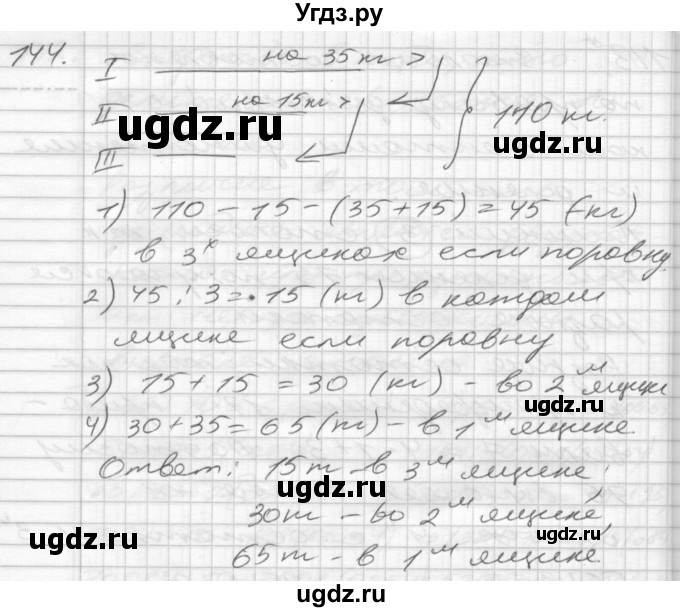 Угдз.ру
144.
I на 35 кг >
II на 15 кг > 110 кг.
III
1) 110 – 15 – (35 + 15) = 45 (кг)
в 3х ящиках если поровну.
2) 45 : 3 = 15 (кг) в каждом
ящике если поровну
3) 15 + 15 = 30 (кг) – во 2м ящике
4) 30 + 35 = 65 (кг) – в 1м ящике
Ответ: 15 кг – в 3м ящике;
30 кг – во 2м ящике;
65 кг – в 1м ящике.
ugdz.ru
ugdz.ru
ugdz.ru
ugdz.ru
ugdz.ru
ugdz.ru
ugdz.ru
ugdz.ru